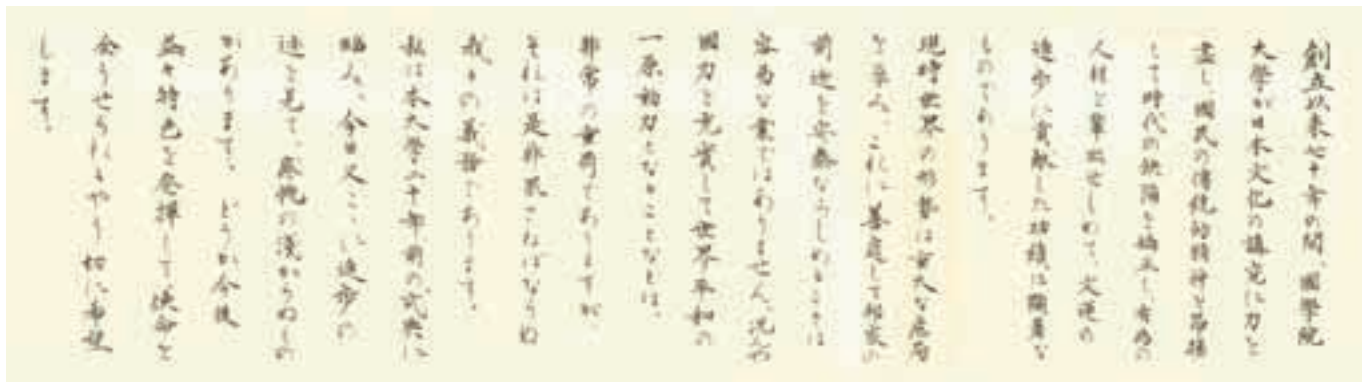 創立以来七十年の間、國學院
大學が日本文化の講究に力を
盡し國民の傳統的精神を昂揚
して時代の缺陥を矯正し有為の
人材を輩出せしめて、文運の
進歩に貢献した功績は顕著な
ものであります。
現時世界の形勢は重大な危局
を孕み、これに善處して邦家の
前途を安泰ならしめることは
容易な業ではありません。況や
國力を充實して世界平和の
一原動力となることなどは、
非常の重荷でありますが、
それは是非果さねばならぬ
我々の義務であります。
私は本大學二十年前の式典に
臨み、今日又ここに進歩の
迹を見て、感慨の浅からぬもの
があります。どうか今後
益々特色を発揮して使命を
全うせられるやう切に希望
します。